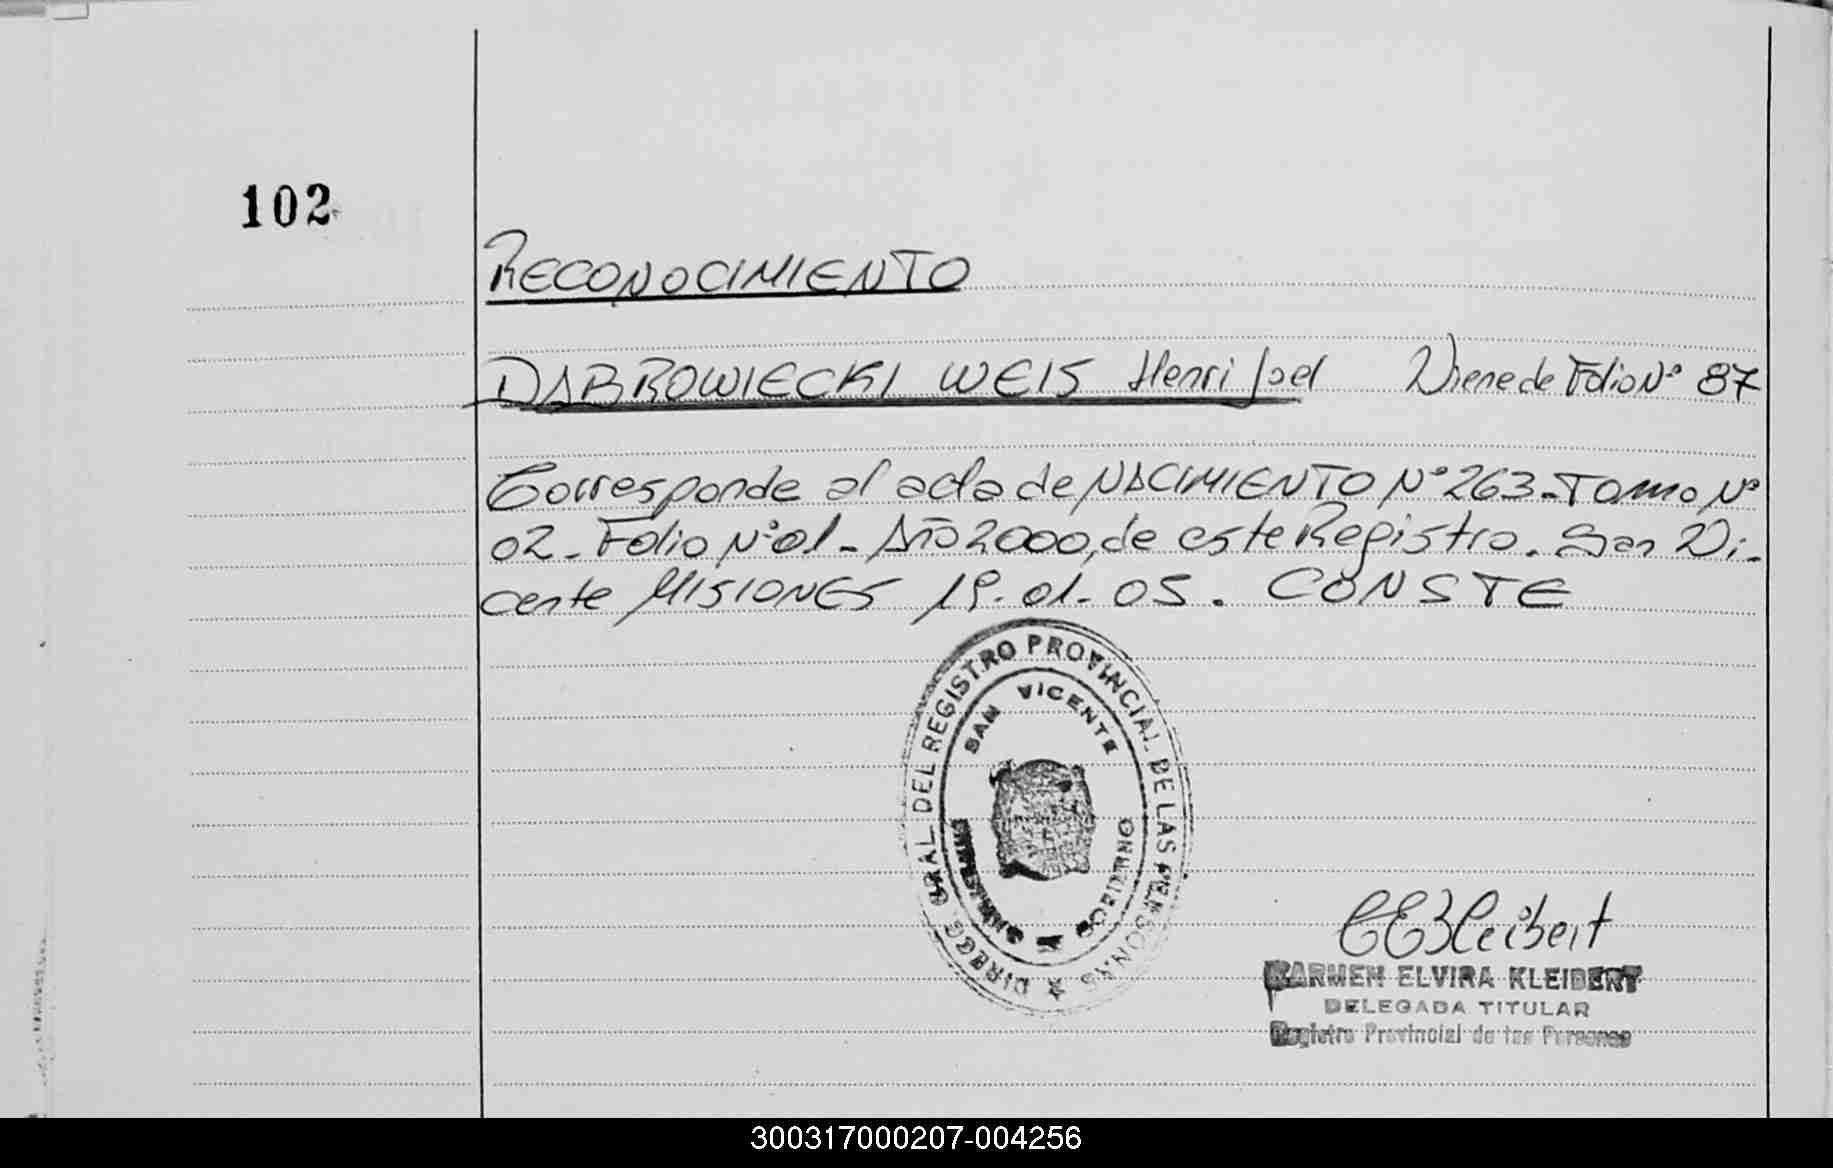 102
RECONOCIMIENTO
DABROWIECKI WEIS Henri Joel Viene de Folio Nº 87
Corresponde al acta de NACIMIENTO Nº 263-TOMO Nº
02-Folio Nº01-Año 2000, de este Registro. San Vi-
cente MISIONES 19-01-05. CONSTE
DIRECC GRAL DEL REGISTRO PROVINCIAL DE LAS PERSONAS
SAN VICENTE
MINISTERIO GOBIERNO
CEKleibert
CARMEN ELVIRA KLEIBERT
DELEGADA TITULAR
Registro Provincial de las Personas
300317000207-004256